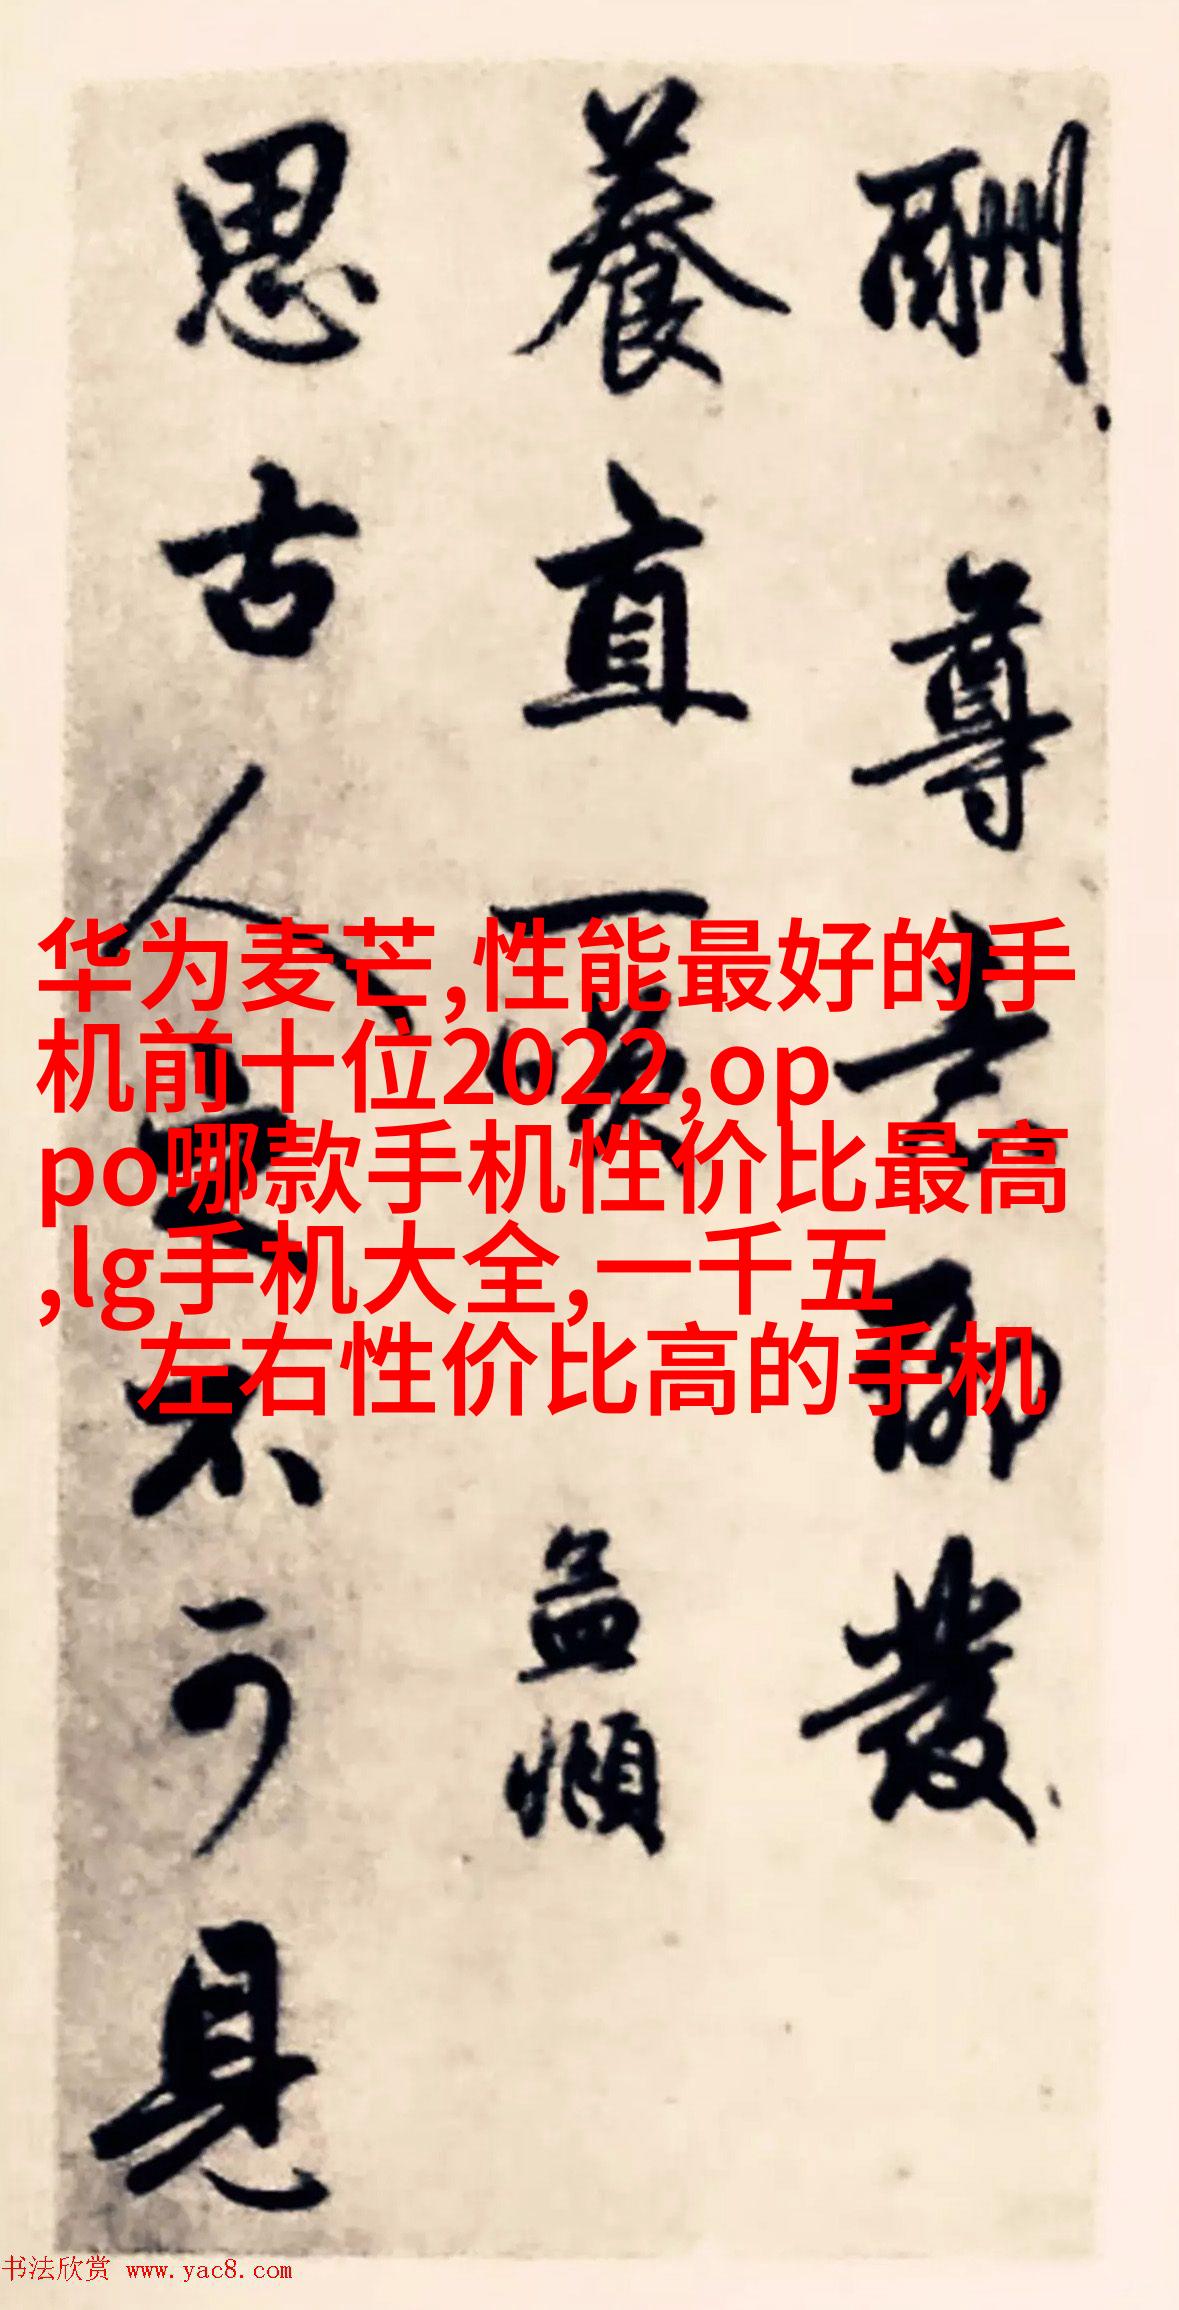 酬尊者聊發
養直一嘆孟頫
思古人而不可見
华为麦芒,性能最好的手
机前十位2022,op
po哪款手机性价比最高
,lg手机大全,一千五
左右性价比高的手机
书法欣赏 www.yac8.com